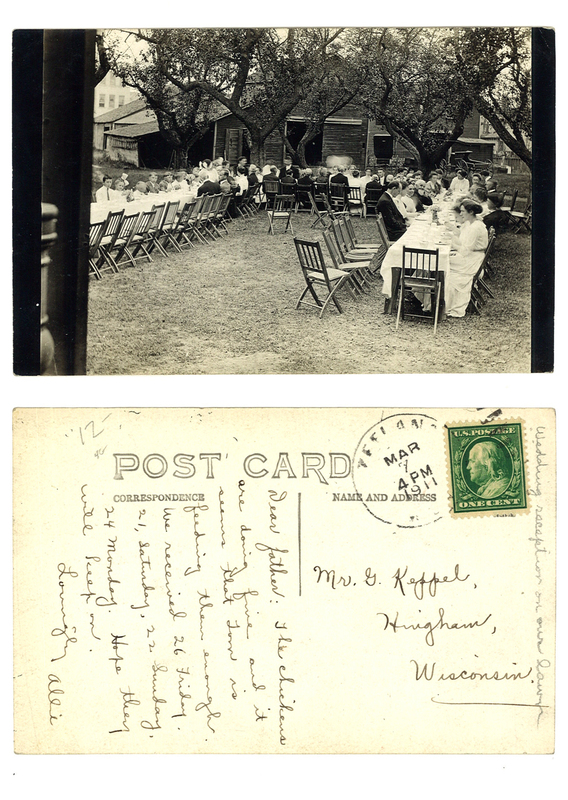 "12-
POST CARD
CORRESPONDENCE
NAME AND ADDRESS
MAR
7
4 PM
1911
U.S. POSTAGE
ONE CENT
Dear father: The chickens
are doing fine and it
seems that Tom is
feeding them enough.
We received 26 Friday.
21, Saturday, 22 Sunday,
24 Monday. Hope they
will keep on.
Lovingly Allie
Mr. G. Keppel,
Hingham,
Wisconsin.
Wedding reception on our lawn